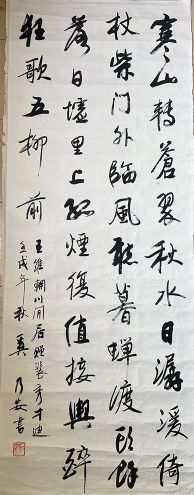 寒山轉蒼翠秋水日潺湲倚
杖柴门外臨風聽暮蟬渡頭餘
落日墟里上孤煙復值接輿醉
狂歌五柳前
王维輞川闲居赠裴秀才迪
壬戌年秋 乃安書